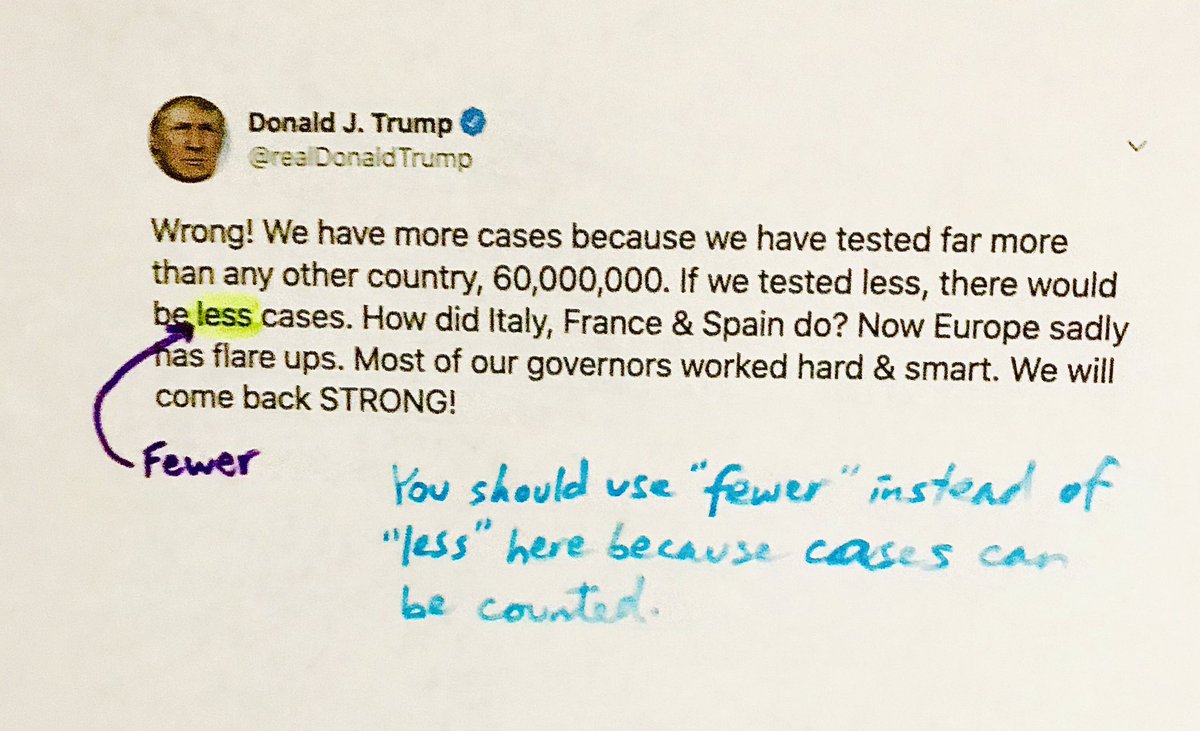 Donald J. Trump
@realDonaldTrump
Wrong! We have more cases because we have tested far more
than any other country, 60,000,000. If we tested less, there would
be less cases. How did Italy, France & Spain do? Now Europe sadly
has flare ups. Most of our governors worked hard & smart. We will
come back STRONG!
Fewer
You should use "fewer" instead of
"less" here because cases can
be counted.